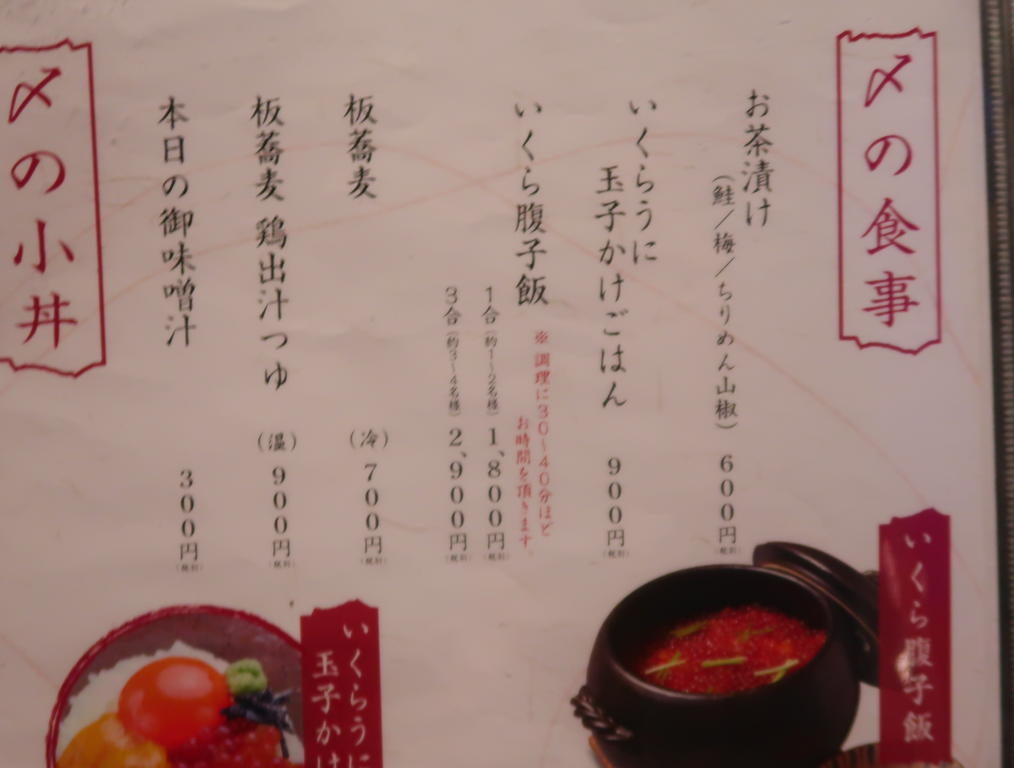 〆の食事
お茶漬け
（鮭／梅／ちりめん山椒） 600円（税別）
いくらうに
玉子かけごはん 900円（税別）
いくら腹子飯
※調理に30〜40分ほど
お時間を頂きます。
1合（約1〜2名様） 1,800円（税別）
3合（約3〜4名様） 2,900円（税別）
板蕎麦 （冷） 700円（税別）
板蕎麦 鶏出汁つゆ （温） 900円（税別）
本日の御味噌汁 300円（税別）
〆の小丼
いくら腹子飯
いくらうに
玉子かけ